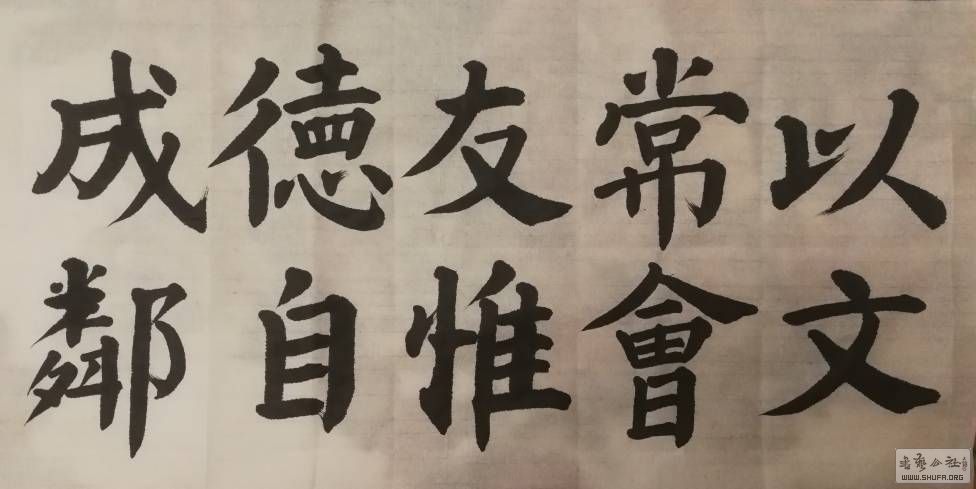 以文
常會
友惟
德自
成鄰
公社
WWW.SHUFA.ORG